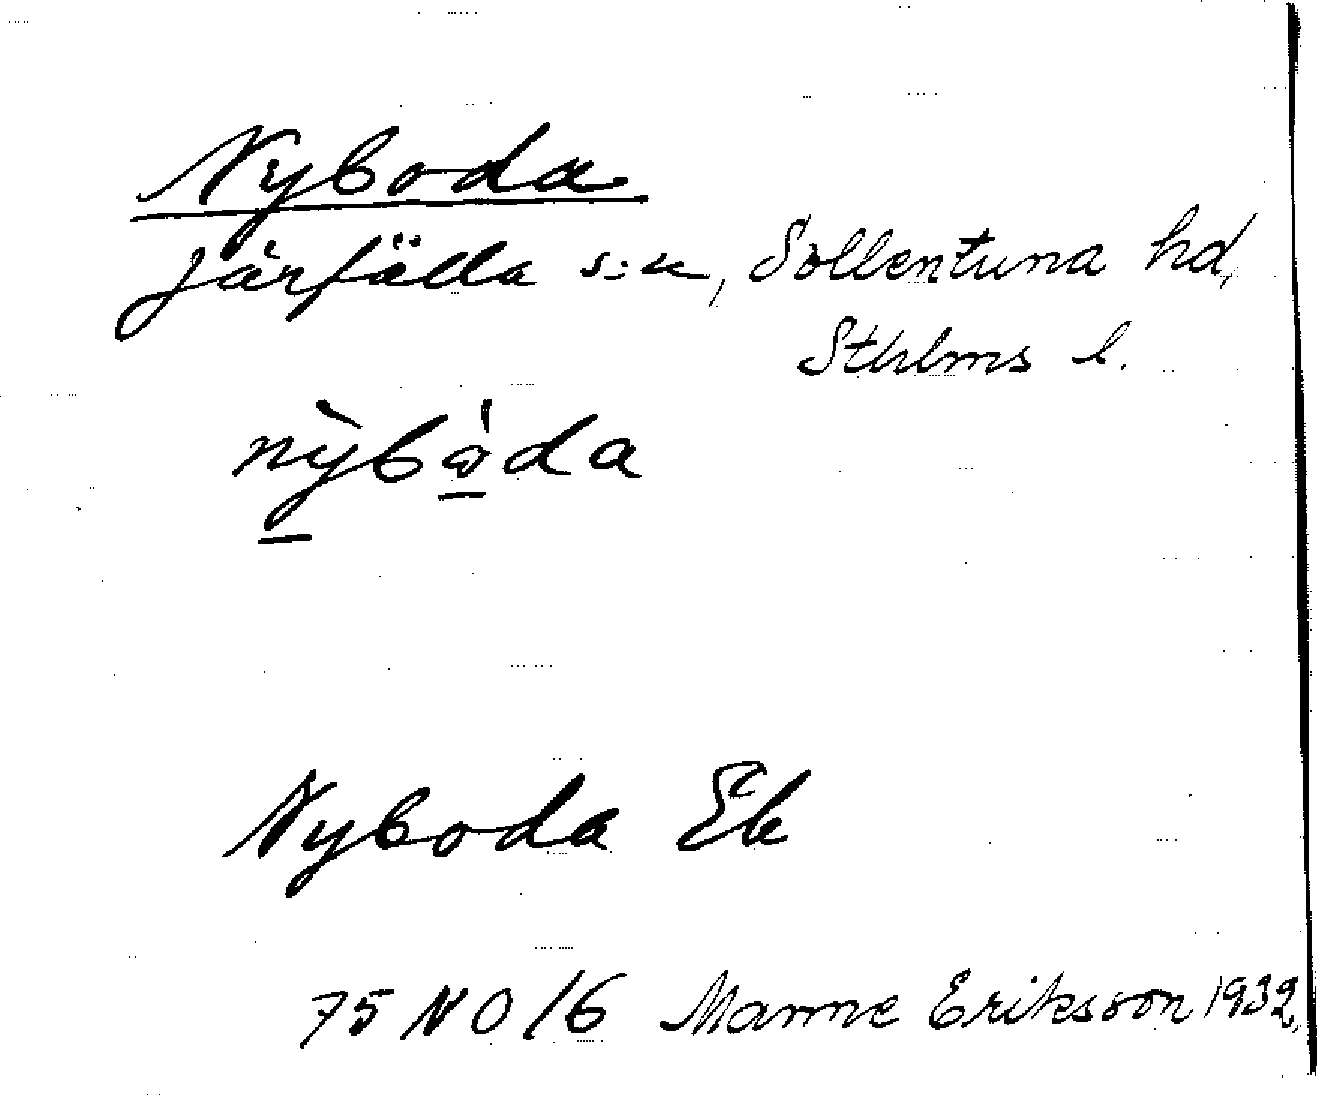 Nyboda
Järfälla s:n, Sollentuna hd,
Sthlms l.
nỳbo̊da
Nyboda Ek
75 NO/6 Manne Eriksson 1932,